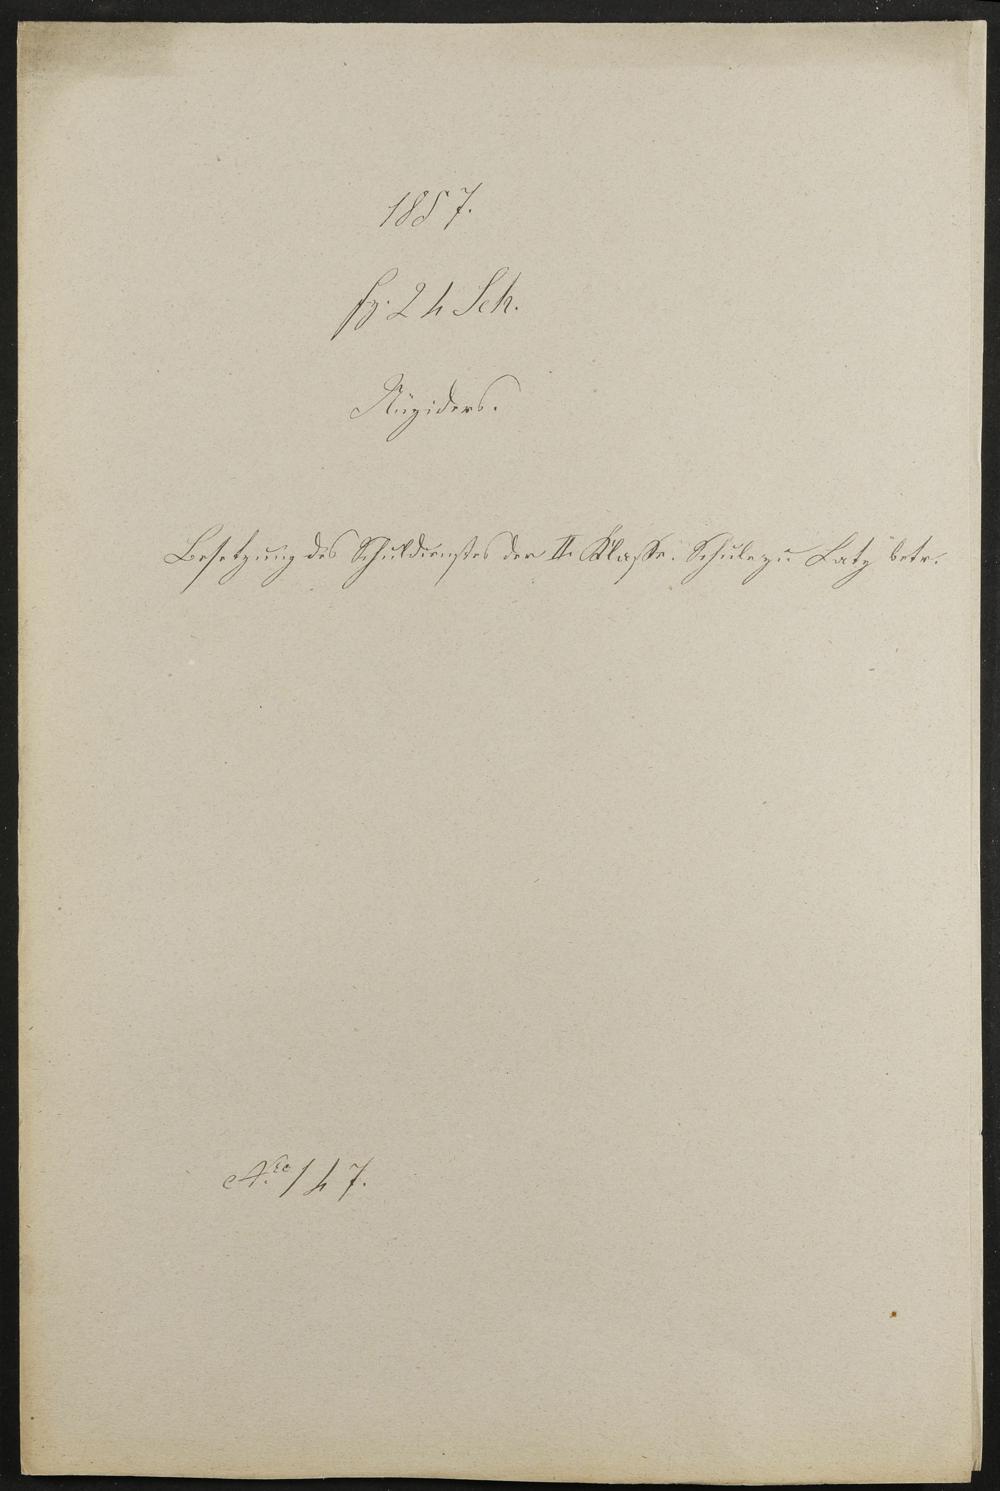 1857.
fz. 24 Sch.
Nüziders.
Besetzung des Schuldienstes der II. Klasse. Schule zu Latz betr.
No. 147.